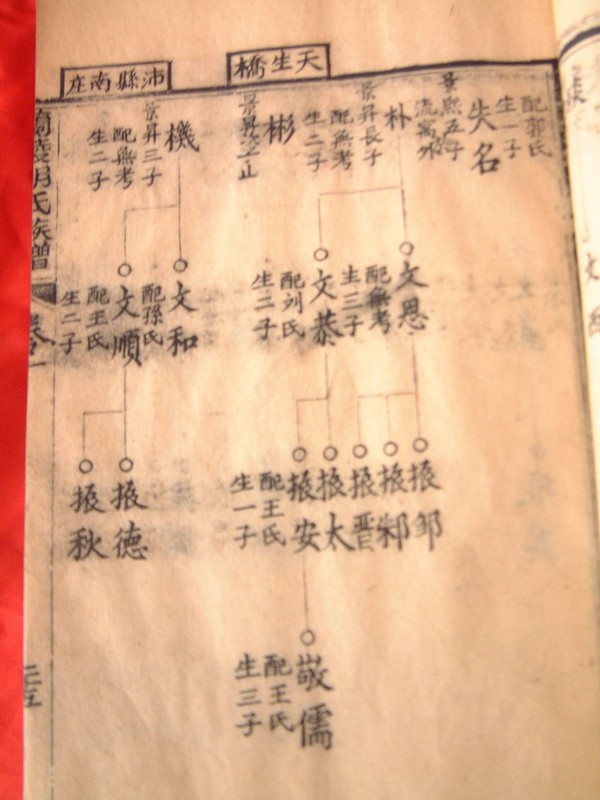 天生橋
沛縣南庄
配郭氏
生一子
失名
景熙五子
流寓外
朴
景昇長子
配無考
生二子
彬
景昇次子止
機
景昇三子
配無考
生二子
文恩
配無考
生三子
文恭
配刘氏
生二子
文和
配孫氏
文順
配王氏
生二子
振邹
振邾
振晋
振太
振安
配王氏
生一子
振德
振秋
敬儒
配王氏
生三子
氏族譜